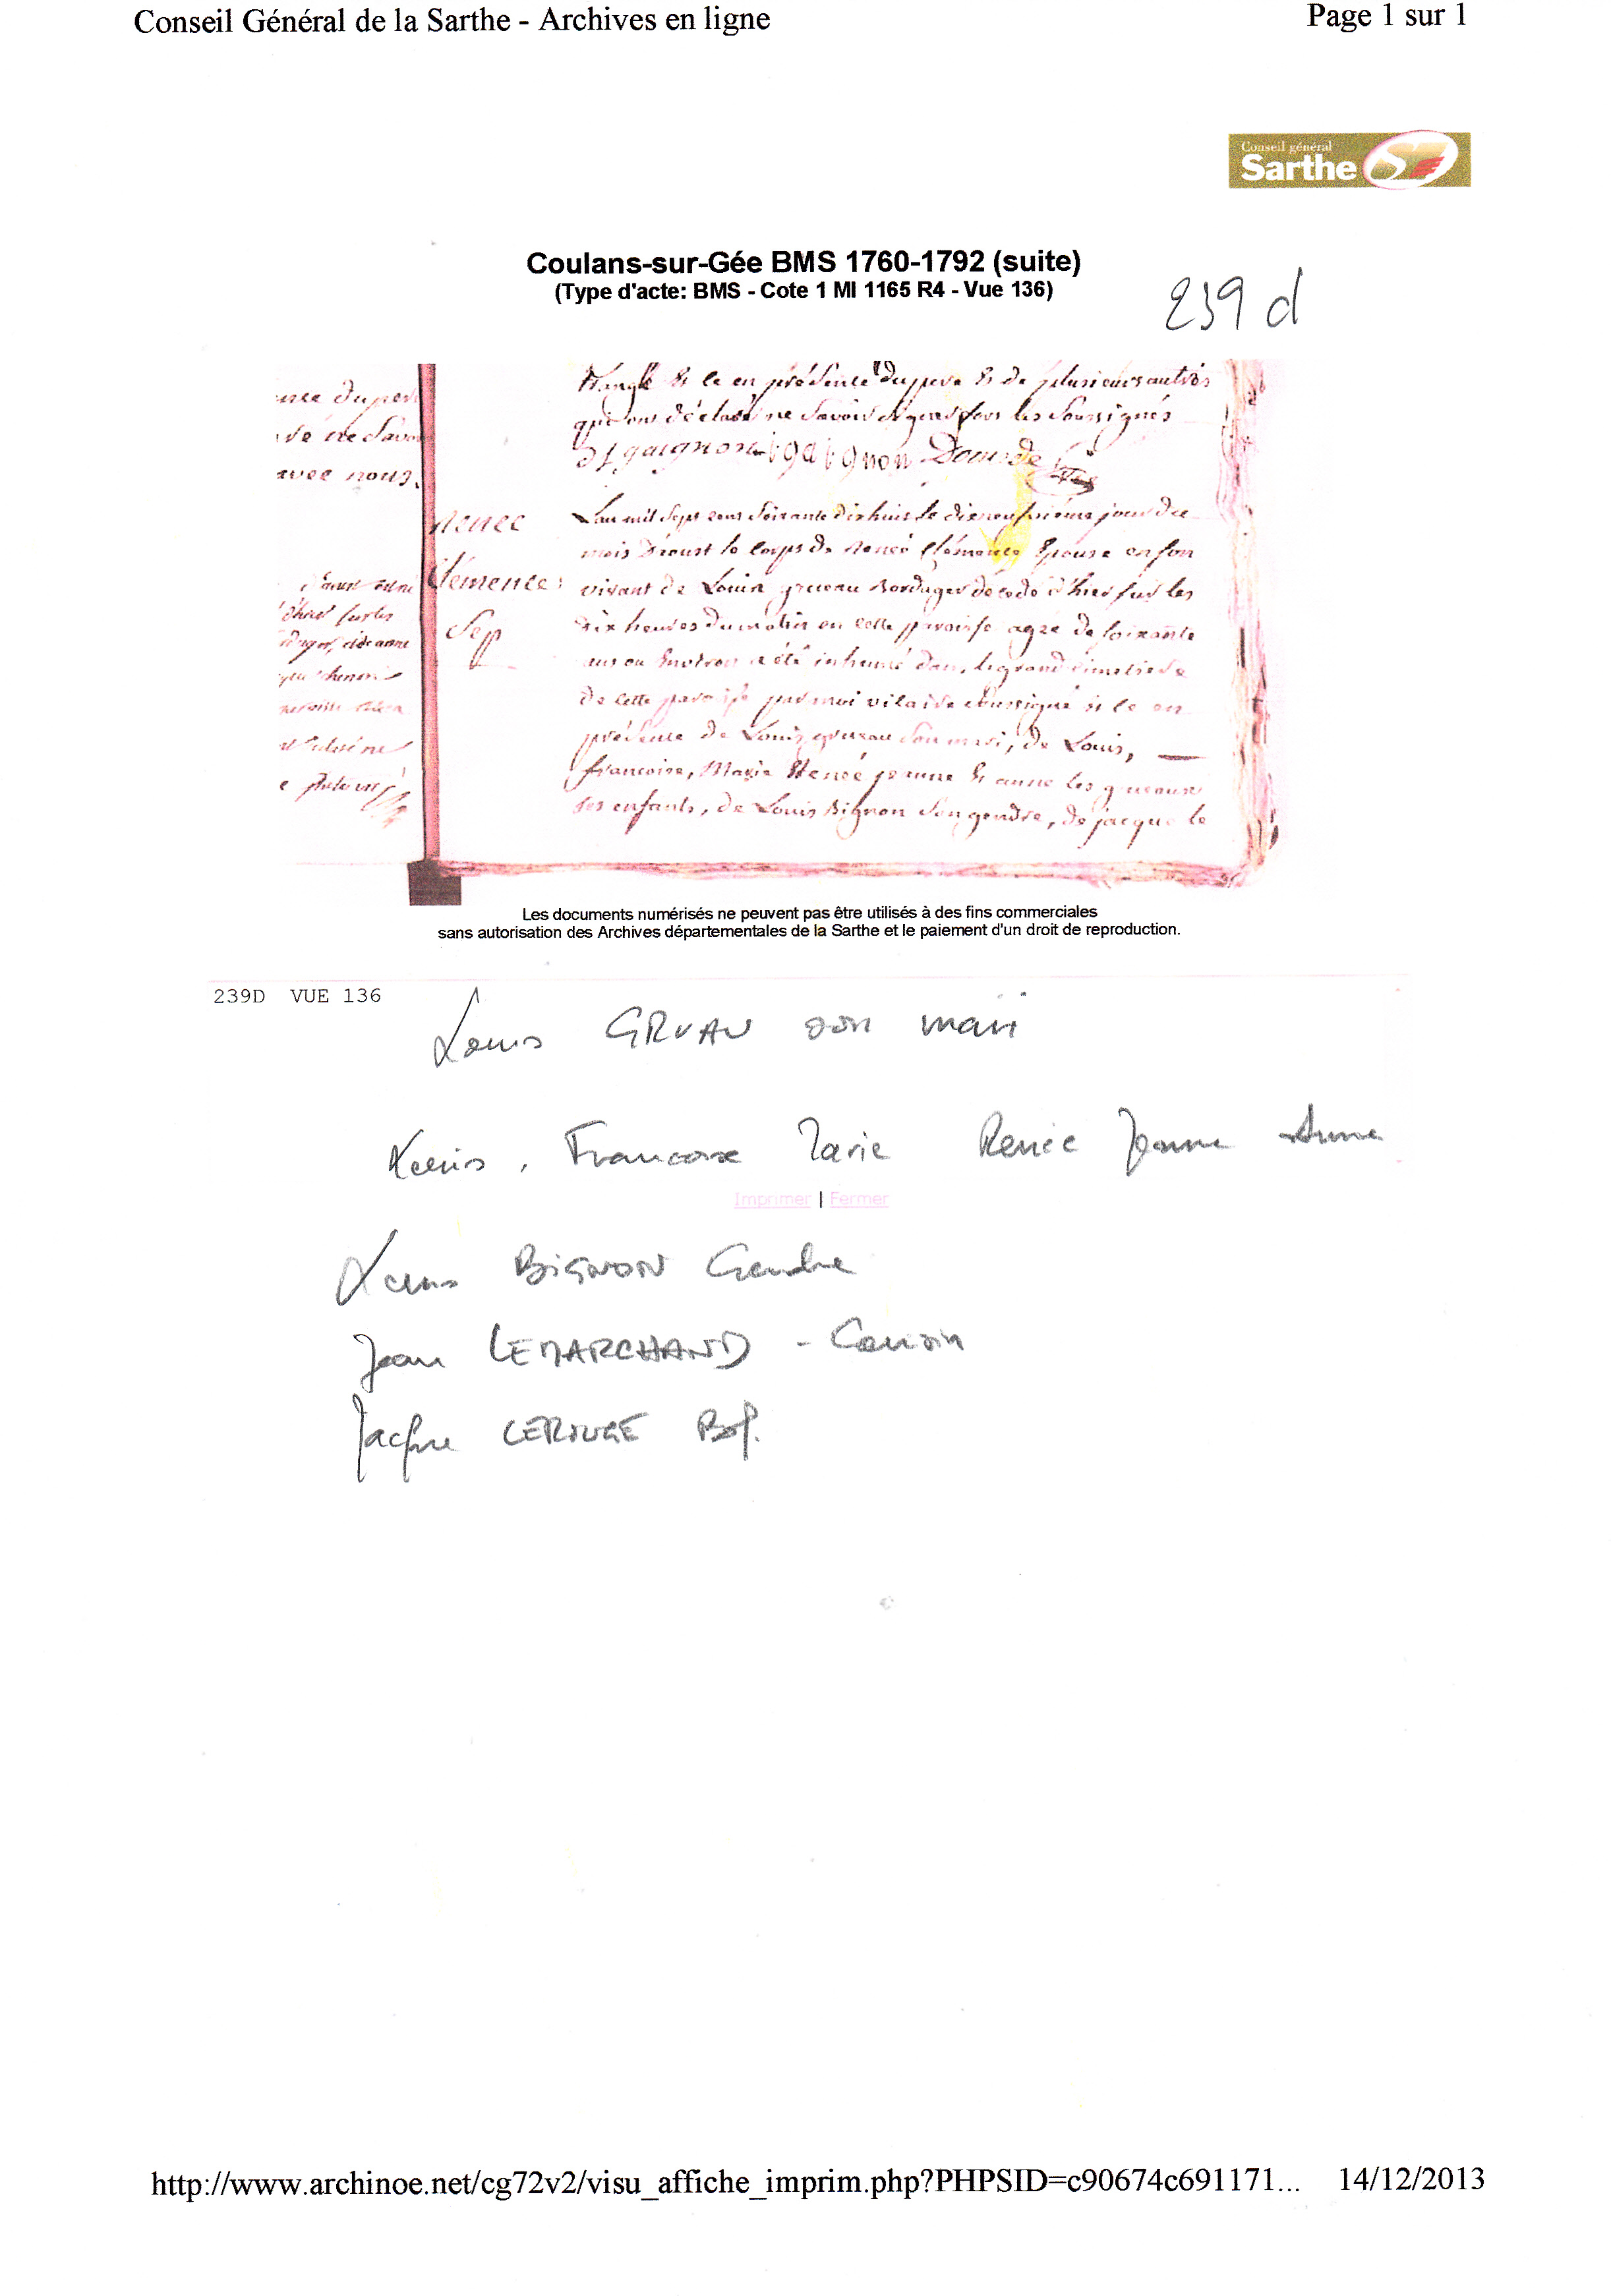 Conseil Général de la Sarthe - Archives en ligne
Page 1 sur 1
Conseil général
Sarthe
Coulans-sur-Gée BMS 1760-1792 (suite)
(Type d'acte: BMS - Cote 1 MI 1165 R4 - Vue 136)
239 d
avec nous
en présence du pere & de plusieurs autres
qui ont déclaré ne savoir signer fors les soussignés
gaignon gaignon
Renee
Clemence
Sep
L'an mil sept cent soixante dixhuit le dixneufvieme jour du
mois d'aoust le corps de Renee Clémence Epouse en son
vivant de Louis grueau Bordager décédé d'hier sur les
dix heures du matin en cette paroisse agée de soixante
ans ou Environ a été inhumé dans le grand cimetiere
de cette paroisse par moi vicaire soussigné & ce en
présence de Louis grueau son mari, de Louis,
francoise, Marie Renée jeanne & anne les grueaux
ses enfants, de Louis Bignon son gendre, de jacque le
Les documents numérisés ne peuvent pas être utilisés à des fins commerciales
sans autorisation des Archives départementales de la Sarthe et le paiement d'un droit de reproduction.
239D VUE 136
Louis GRUAU son mari
Louis, Francoise Marie Renée Jeanne Anne
Imprimer | Fermer
Louis BIGNON Gendre
Jean LEMARCHAND - Cousin
Jacque LEROUGE Bof.
http://www.archinoe.net/cg72v2/visu_affiche_imprim.php?PHPSID=c90674c691171...
14/12/2013